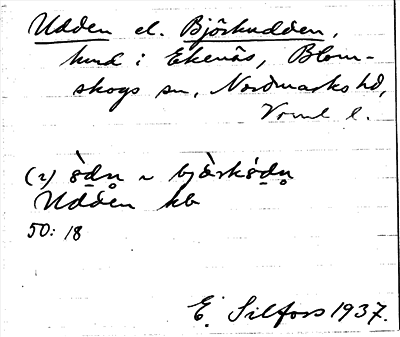 Udden el. Björkudden,
hmd i Ekenäs, Blom-
skogs sn, Nordmarks hd,
Vrml l.
(2) s̀du̥ ~ bjàrkśdu̥
Udden kb
50: 18
E. Silfors 1937.